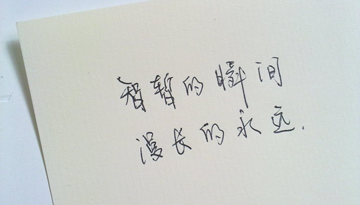 暂的瞬间
漫长的永远.